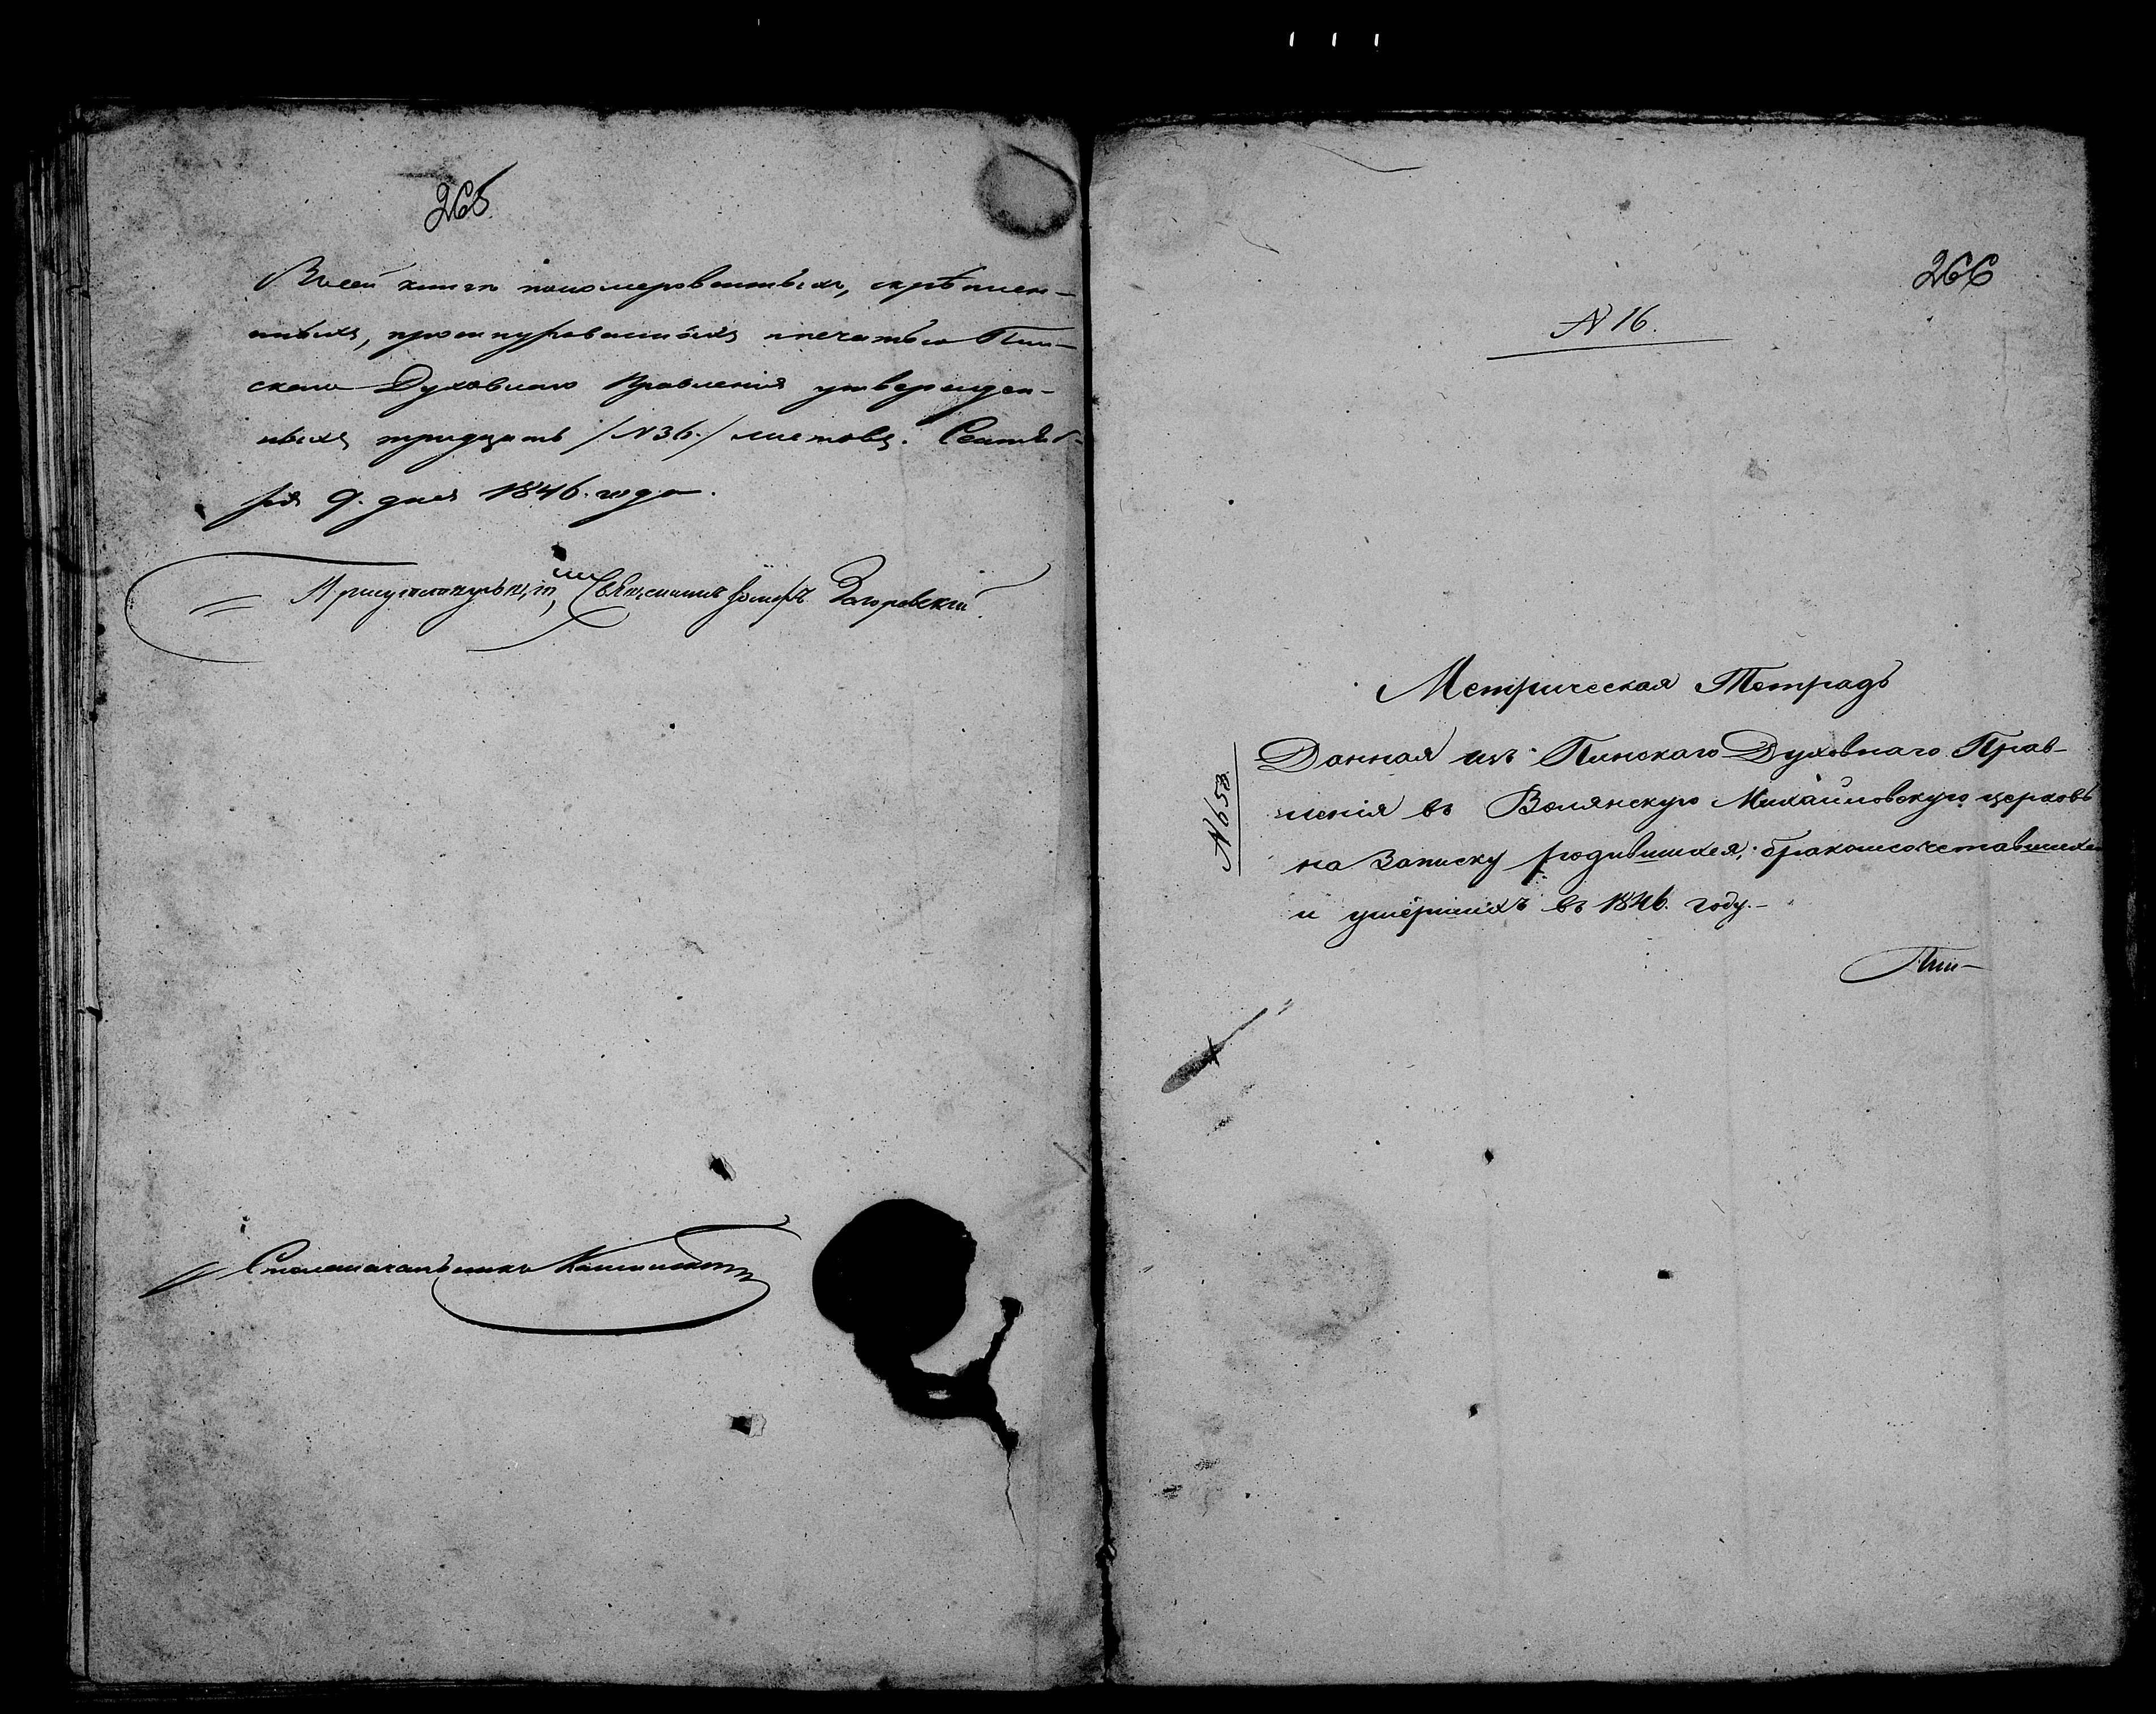 265
Въ сей книгѣ пономерованныхъ, скрѣплен-
ныхъ, прошнурованныхъ и печатью Пин-
скаго Духовнаго Правленія утвержден-
ныхъ тридцать /N36./ листовъ. Сентяб-
ря 9. дня 1846. года.
Присутствующій, Священникъ Іосифъ Загоровскій.
Столоначальникъ
266
N 16.
N 653.
Метрическая Тетрадь
Данная изъ Пинскаго Духовнаго Прав-
ленія въ Волянскую Михайловскую церковь
на Записку родившихся, бракомсочетавшихся
и умершихъ въ 1846. году.-
Пин-